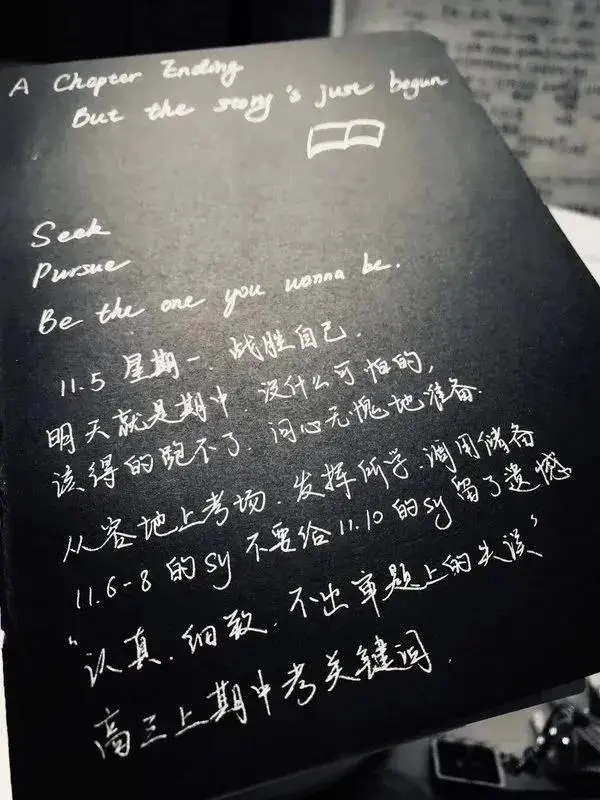 A Chapter Ending
But the story's just begun
Seek
Pursue
Be the one you wanna be.
11.5 星期一. 战胜自己.
明天就是期中. 没什么可怕的,
该得的跑不了. 问心无愧地准备.
从容地上考场. 发挥所学. 调用储备
11.6-8 的 sy 不要给 11.10 的 sy 留了遗憾
“认真. 细致. 不出审题上的失误”
高三上期中考关键词.